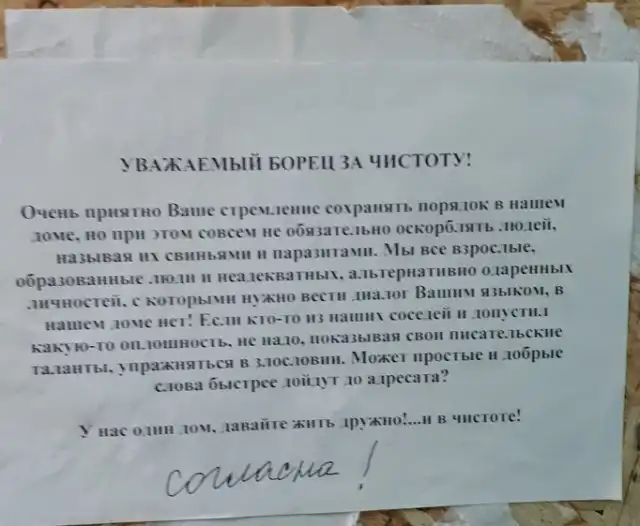 УВАЖАЕМЫЙ БОРЕЦ ЗА ЧИСТОТУ!
Очень приятно Ваше стремление сохранять порядок в нашем
доме, но при этом совсем не обязательно оскорблять людей,
называя их свиньями и паразитами. Мы все взрослые,
образованные люди и неадекватных, альтернативно одаренных
личностей, с которыми нужно вести диалог Вашим языком, в
нашем доме нет! Если кто-то из наших соседей и допустил
какую-то оплошность, не надо, показывая свои писательские
таланты, упражняться в злословии. Может простые и добрые
слова быстрее дойдут до адресата?
У нас один дом, давайте жить дружно!...и в чистоте!
согласна!